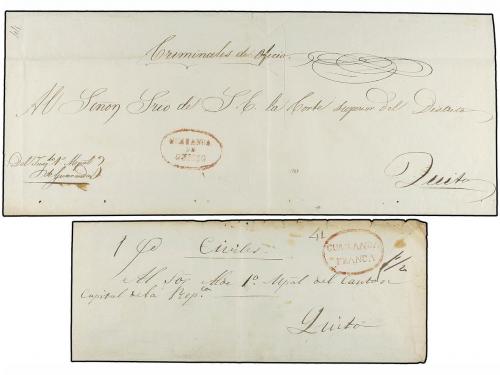 Criminales de Oficio.
Al Señor Srio de S. E. la Corte Superior del Distrito
GUARANDA
DE
OFICIO
Del Juzg.do 1º Mpal
de Guaranda
Quito
Civiles
41
GUARANDA
FRANCA
Al Sor Alde 1º Mpal del Canton
Capital de la
Quito